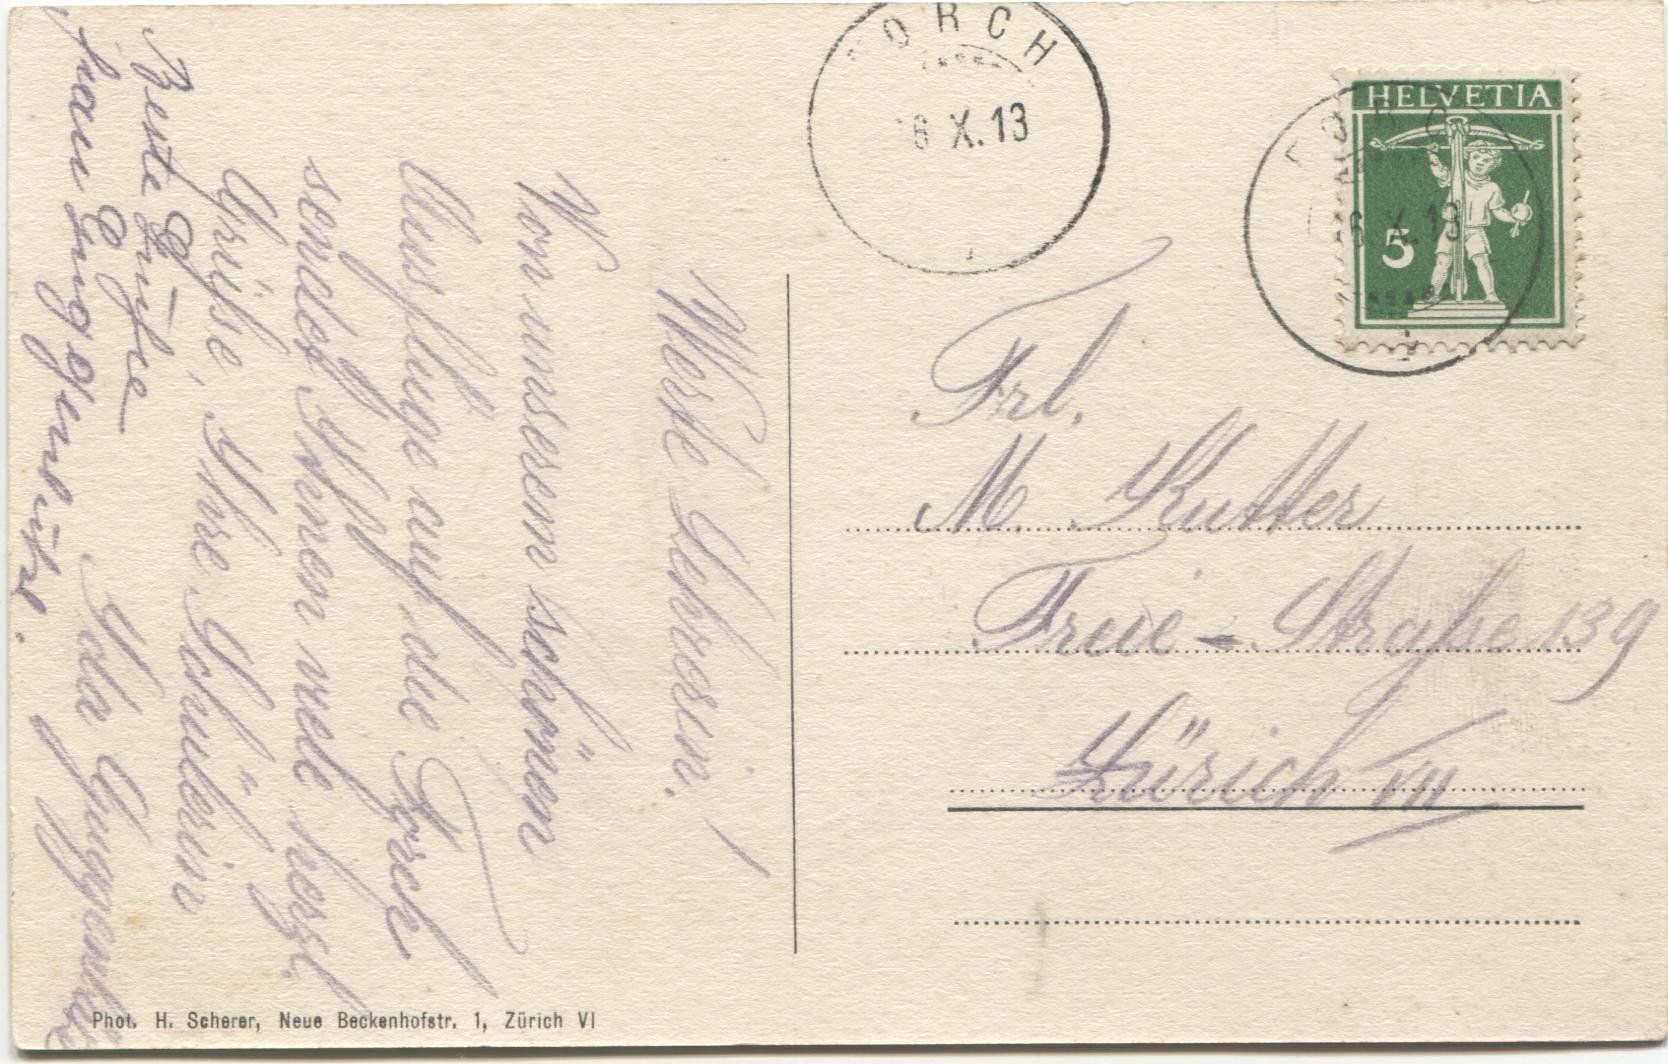 FORCH
6 X. 13
HELVETIA
5
FORC
6. X. 13
Frl.
M. Kutter
Freie-Straße 139
Zürich VII
Werte Lehrerin!
Von unserem schönen
Ausfluge auf die Forch
sendet Ihnen viele herzl.
Grüsse, Ihre Schülerin
Ida Guggenbühl
Beste Grüße
frau Guggenbühl.
Phot. H. Scherer, Neue Beckenhofstr. 1, Zürich VI